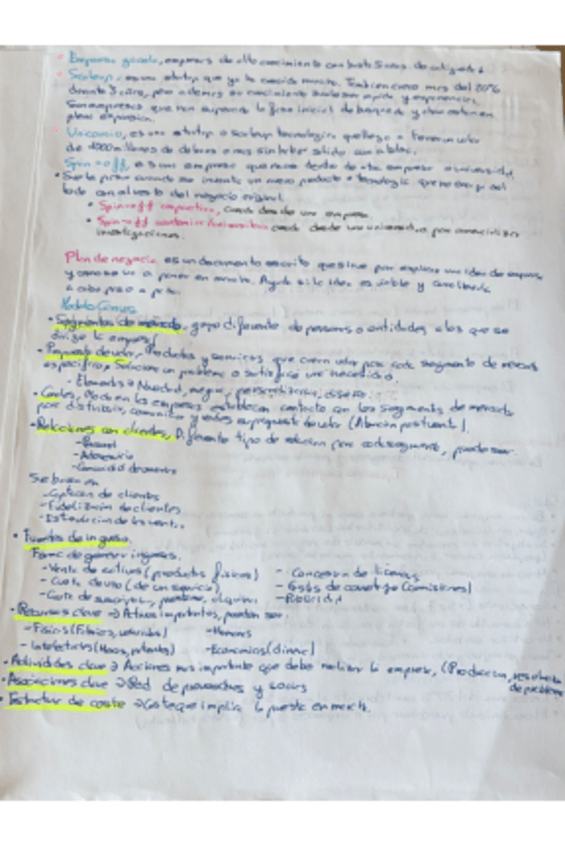 Empresa gacela, empresas de alto crecimiento con hasta 5 años de antigüedad
Scaleup, es una startup que ya ha crecido mucho. También crece más del 20%
durante 3 años, pero además su crecimiento suele ser rápido y exponencial.
Son empresas que han superado la fase inicial de búsqueda y ahora están en
plena expansión.
Unicornio, es una startup o scaleup tecnológica que llega a tener un valor
de 1000 millones de dolares o mas sin haber salido a
Spin-off, es una empresa que nace desde de otra empresa o universidad,
Suele pasar cuando se inventa un nuevo producto o tecnología que no encaja del
todo con el resto del negocio original.
Spin-off corporativo, cuando desde una empresa.
Spin-off cuando desde una universidad, para comercializar
investigaciones.
Plan de negocio, es un documento escrito que sirve para explicar una idea de empresa
y como se va a poner en marcha. Ayuda si la idea es viable y
a cabo paso a paso.
Modelo Canvas
• Segmentos de mercado, grupo diferente de personas o entidades a los que se
dirige la empresa
• Propuesta de valor, Productos y servicios que crean valor para cada segmento de mercado
específico, Soluciona un problema o satisface una necesidad.
- Elementos → Novedad, mejora, personalización, diseño.
• Canales, Modo en las empresas establecen contacto con los segmentos de mercado
para distribuir, comunicar y vender su propuesta de valor (Atencion postventa).
• Relaciones con clientes, Diferente tipo de relacion para cada segmento, pueden ser
- Personal
- Automatico
- Comunidad de usuarios
Se basan en
- Captacion de clientes
- Fidelizacion de clientes
- Estimulacion de las ventas
• Fuentes de ingreso
Forma de generar ingresos.
- Venta de activos (productos físicos) - Concesion de licencias
- Cuota de uso (de un servicio) - Gastos de corretaje (Comisiones)
- Cuota de suscripcion, prestamo, alquiler - Publicidad
• Recursos clave → Activos importantes, pueden ser
- Físicos (Fabricas, vehiculos) - Humanos
- Intelectuales (Marcas, patentes) - Economicos (dinero)
• Actividades clave → Acciones mas importante que debe realizar la empresa, (Produccion, resolucion
de problemas
• Asociaciones clave → Red de proveedores y socios
• Estructura de coste → Coste que implica la puesta en marcha.